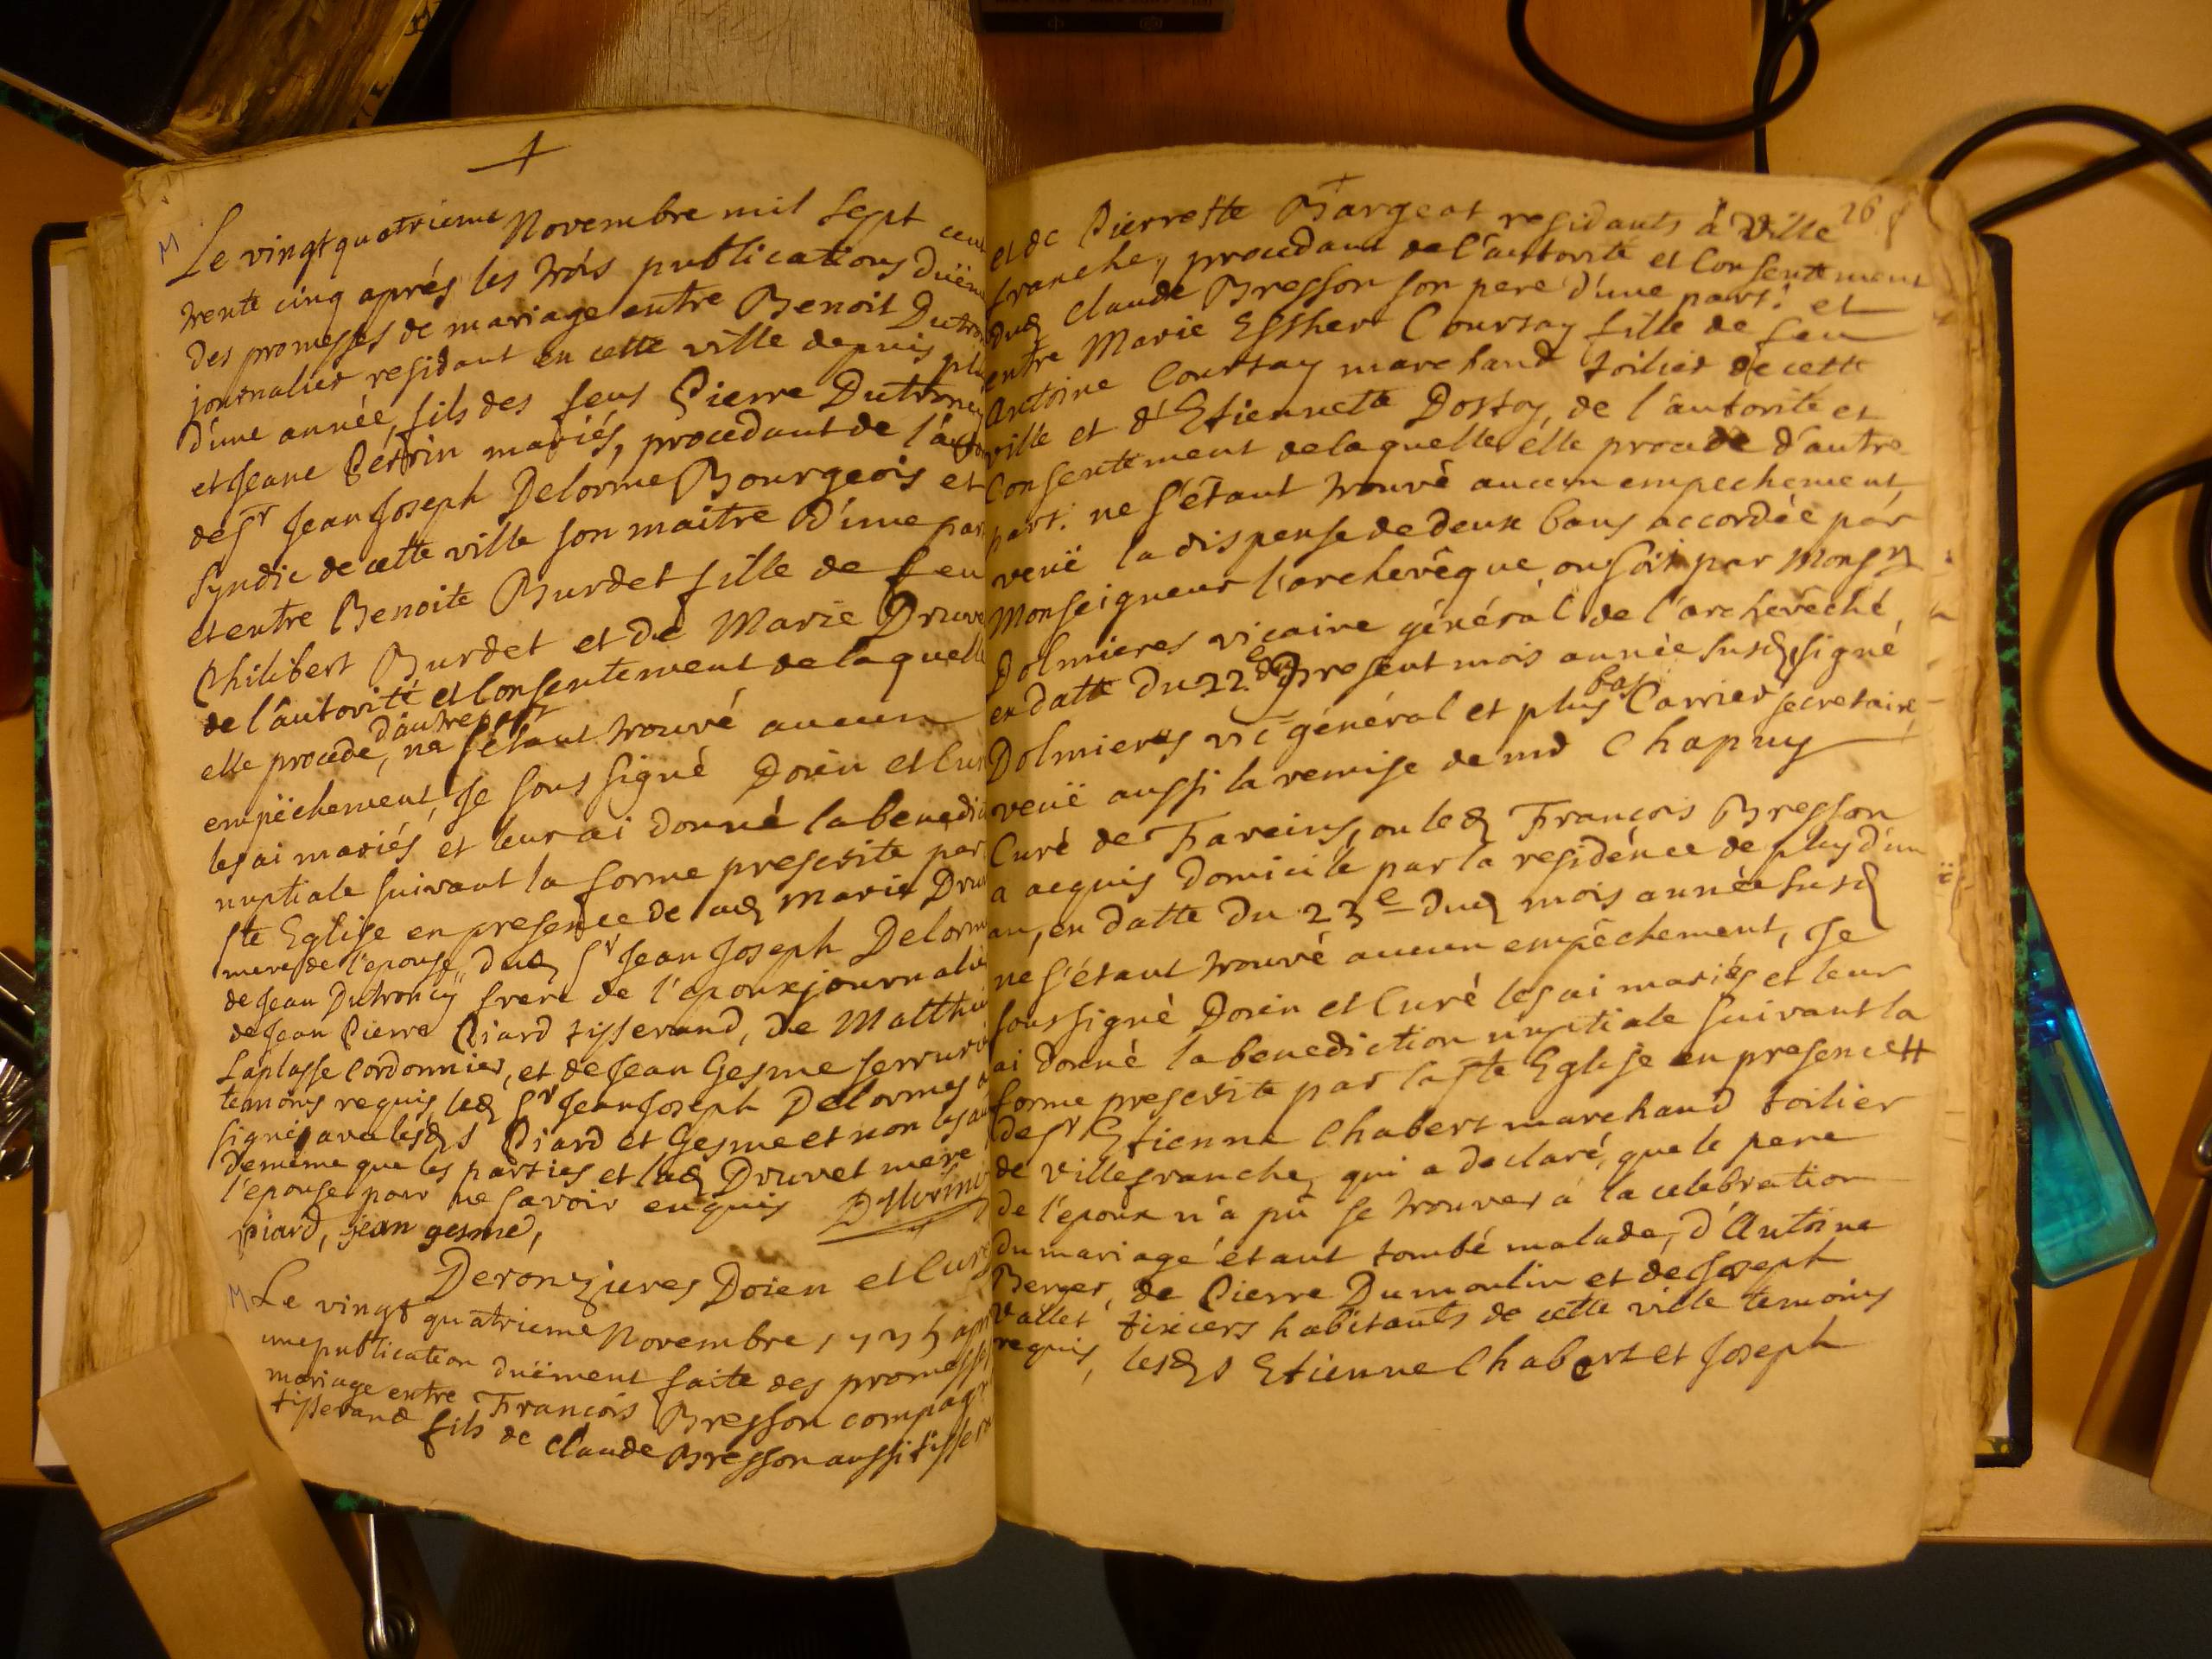 Le vingt quatrieme Novembre mil sept cent
trente cinq aprés les trois publications duëm
des promesses de mariage entre Benoit Dutron
journalier residant en cette ville depuis plu
d'une année, fils des feus Pierre Dutroncy
et Jeane Perrin mariés, procedant de l'auto
de Sr Jean Joseph Delorme Bourgeois et
Syndic de cette ville son maitre d'une par
et entre Benoite Burdet fille de feu
Philibert Burdet et de Marie Druve
de l'autorité et consentement de laquelle
d'autre part
elle procede, ne s'étant trouvé aucun
empêchement, Je sous signé Doien et Cur
les ai mariés et leur ai donné la benedic
nuptiale suivant la forme prescrite par
ste Eglise en presence de lad Marie Druv
mere de l'epouse, dud Sr Jean Joseph Delorm
de Jean Dutroncÿ frere de l'epoux journalie
de Jean Pierre Piard tisserand, de Matthie
Laplasse Cordonnier, et de Jean Gesme serruri
temoins requis, led Sr Jean Joseph Delormes a
signé, avec lesd s Piard et Gesme et non les au
de même que les parties et lad Druvet mere
l'epouse, pour ne savoir enquis Dellorme
piard, jean gesme,
Deronzieres Doien et Curé
Le vingt quatrieme Novembre, 1735 apr
une publication duëment faite des promesses
mariage entre François Bresson compagn
tisserand fils de Claude Bresson aussi tisseran
26
et de Pierrette Bargeat residants à ville
franche, procedant de l'autorité et consentement
dud Claude Bresson son pere d'une part: et
entre Marie Esther Coursay fille de feu
Antoine Coursay marchand toilier de cette
ville et d'Etiennette Dostoy, de l'autorité et
Consentement de laquelle elle procede d'autre
part: ne s'étant trouvé aucun empechement,
veuë la dispense de deux bans accordée par
Monseigneur l'archevêque, ou soit par Monsr
Dolmieres vicaire général de l'archevêché,
en datte du 22e du present mois année susd, signé
bas
Dolmieres vic général et plus Carrier secretaire,
veuë aussi la remise de md Chapuy
Curé de Fareins, ou led François Bresson
a acquis domicile par la residence de plus d'un
an, en datte du 23e dud mois année susd
ne s'étant trouvé aucun empêchement, Je
sous signé Doien et Curé les ai mariés et leur
ai donné la benediction nuptiale suivant la
forme prescrite par la ste Eglise en presence
de Sr Etienne Chabert marchand toilier
de villefranche, qui a declaré, que le pere
de l'epoux n'a pû se trouver à la celebration
du mariage étant tombé malade, d'Antoine
Berger, de Pierre Dumoulin et de Joseph
vallet tixiers habitants de cette ville temoins
requis, lesd s Etienne Chabert et Joseph